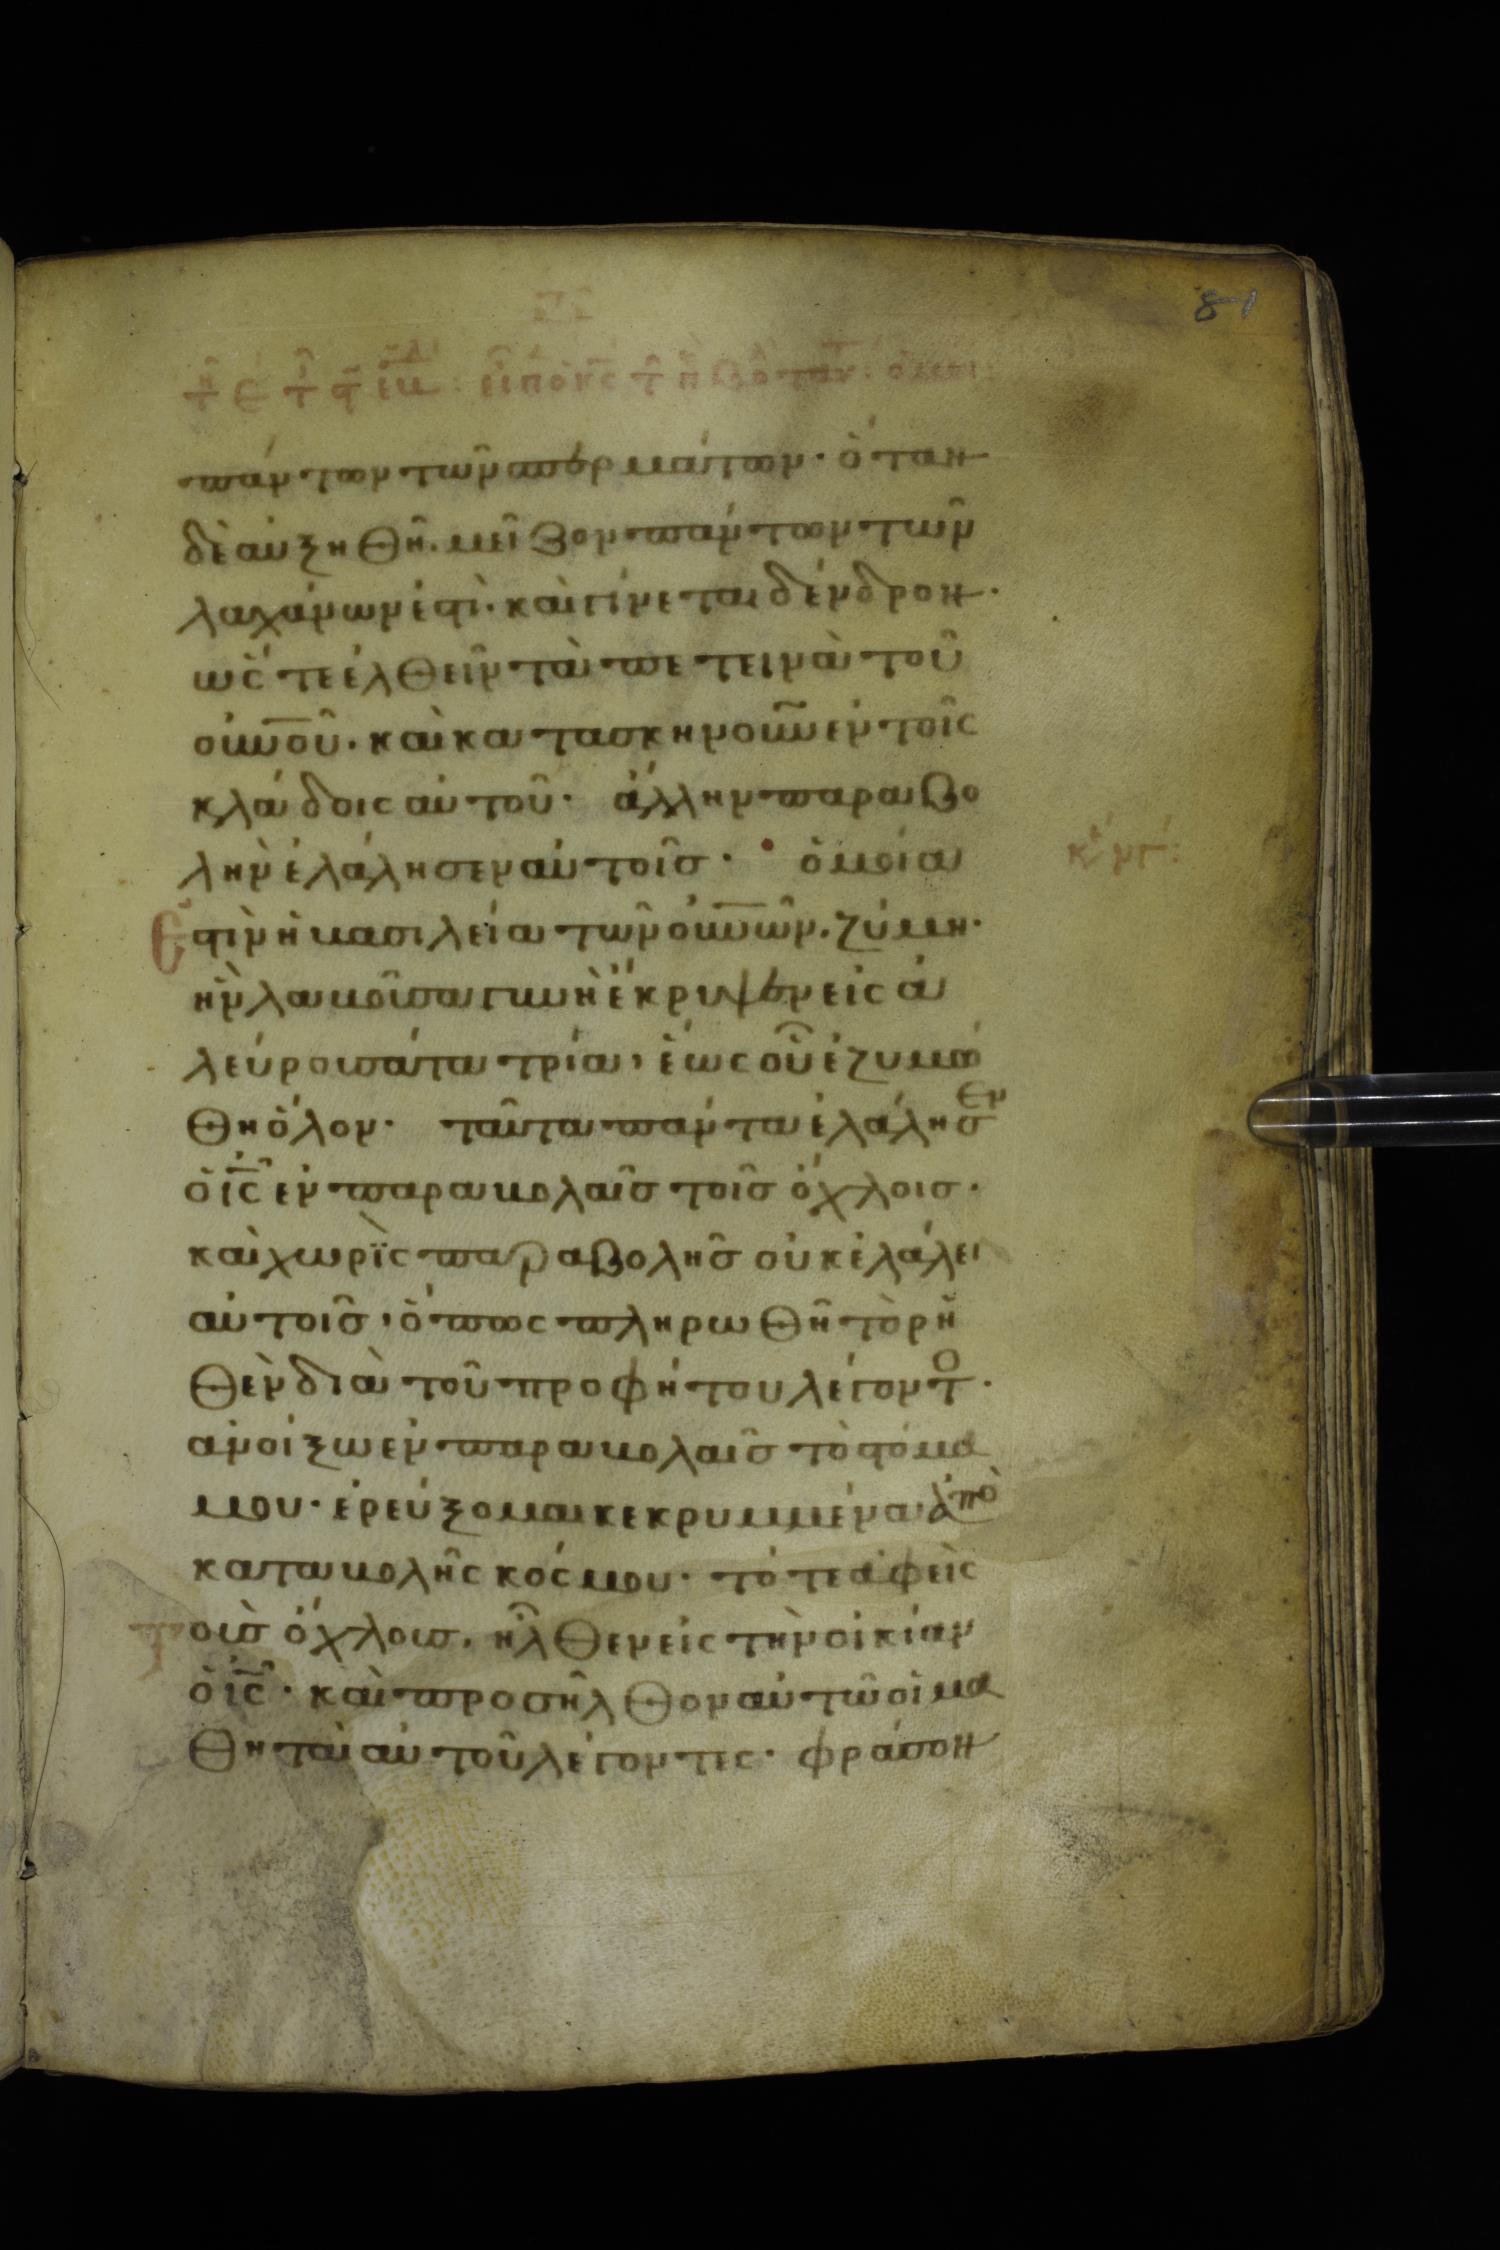 81
πάντων τῶν σπερμάτων· ὅταν
δὲ αὐξηθῆ· μεῖζον πάντων τῶν
λαχάνων ἐστὶ· καὶ γίνεται δένδρον·
ὥς τε ἐλθεῖν τὰ πετεινὰ τοῦ
οὐνοῦ· καὶ κατασκηνοῦν ἐν τοῖς
κλάδοις αὐτοῦ· ἄλλην παραβο
λὴν ἐλάλησεν αὐτοῖς· ὁμοία
ἐστὶν ἡ βασιλεία τῶν οὐνῶν· ζύμη·
ἣν λαβοῦσα γυνὴ ἔκρυψεν εἰς ἀ
λεύρου σάτα τρία, ἕως οὗ ἐζυμώ
θη ὅλον· ταῦτα πάντα ἐλάλησεν
ὁ ις ἐν παραβολαῖς τοῖς ὄχλοις·
καὶ χωρὶς παραβολῆς οὐκ ἐλάλει
αὐτοῖς, ὅπως πληρωθῆ τὸ ρη
θὲν διὰ τοῦ προφήτου λέγοντο·
ἀνοίξω ἐν παραβολαῖς τὸ στόμα
μου· ἐρεύξομαι κεκρυμμένα ἀπὸ
καταβολῆς κόσμου· τότε ἀφεὶς
τοὺς ὄχλους, ἦλθεν εἰς τὴν οἰκίαν
ὁ ις· καὶ προσῆλθον αὐτῶ οἱ μα
θηταὶ αὐτοῦ λέγοντες· φράσον